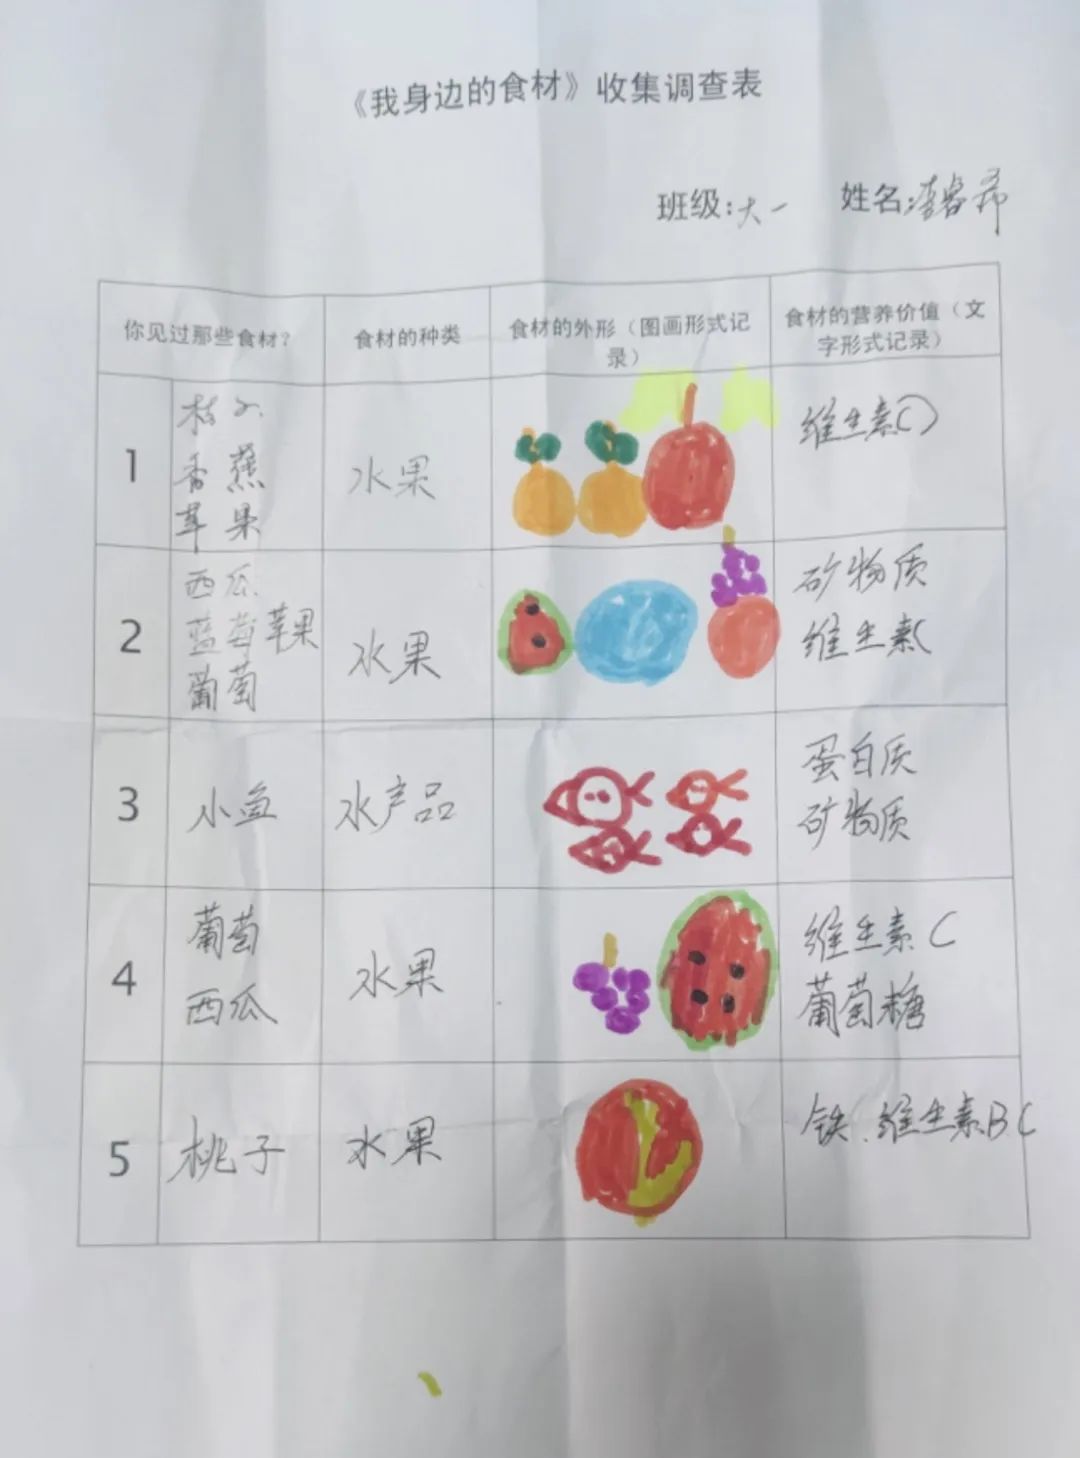 《我身边的食材》收集调查表
班级:大一 姓名:
你见过那些食材?
食材的种类
食材的外形（图画形式记
录）
食材的营养价值（文
字形式记录）
1
香蕉
苹果
水果
维生素C
2
西瓜
蓝莓苹果
葡萄
水果
矿物质
维生素C
3
小鱼
水产品
蛋白质
矿物质
4
葡萄
西瓜
水果
维生素C
葡萄糖
5
桃子
水果
铁、维生素BC